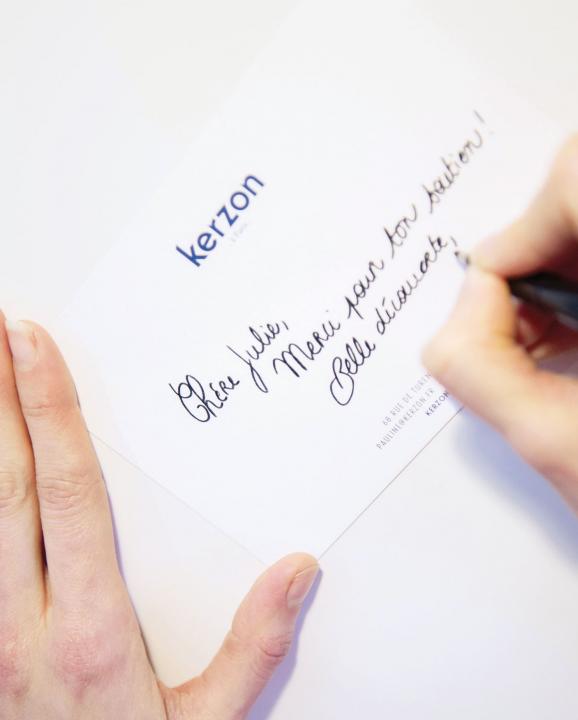 kerzon
à Paris
Chère Julie,
Merci pour ton soutien!
Belle découverte,
68 RUE DE TUREN
PAULINE@KERZON.FR
KERZON